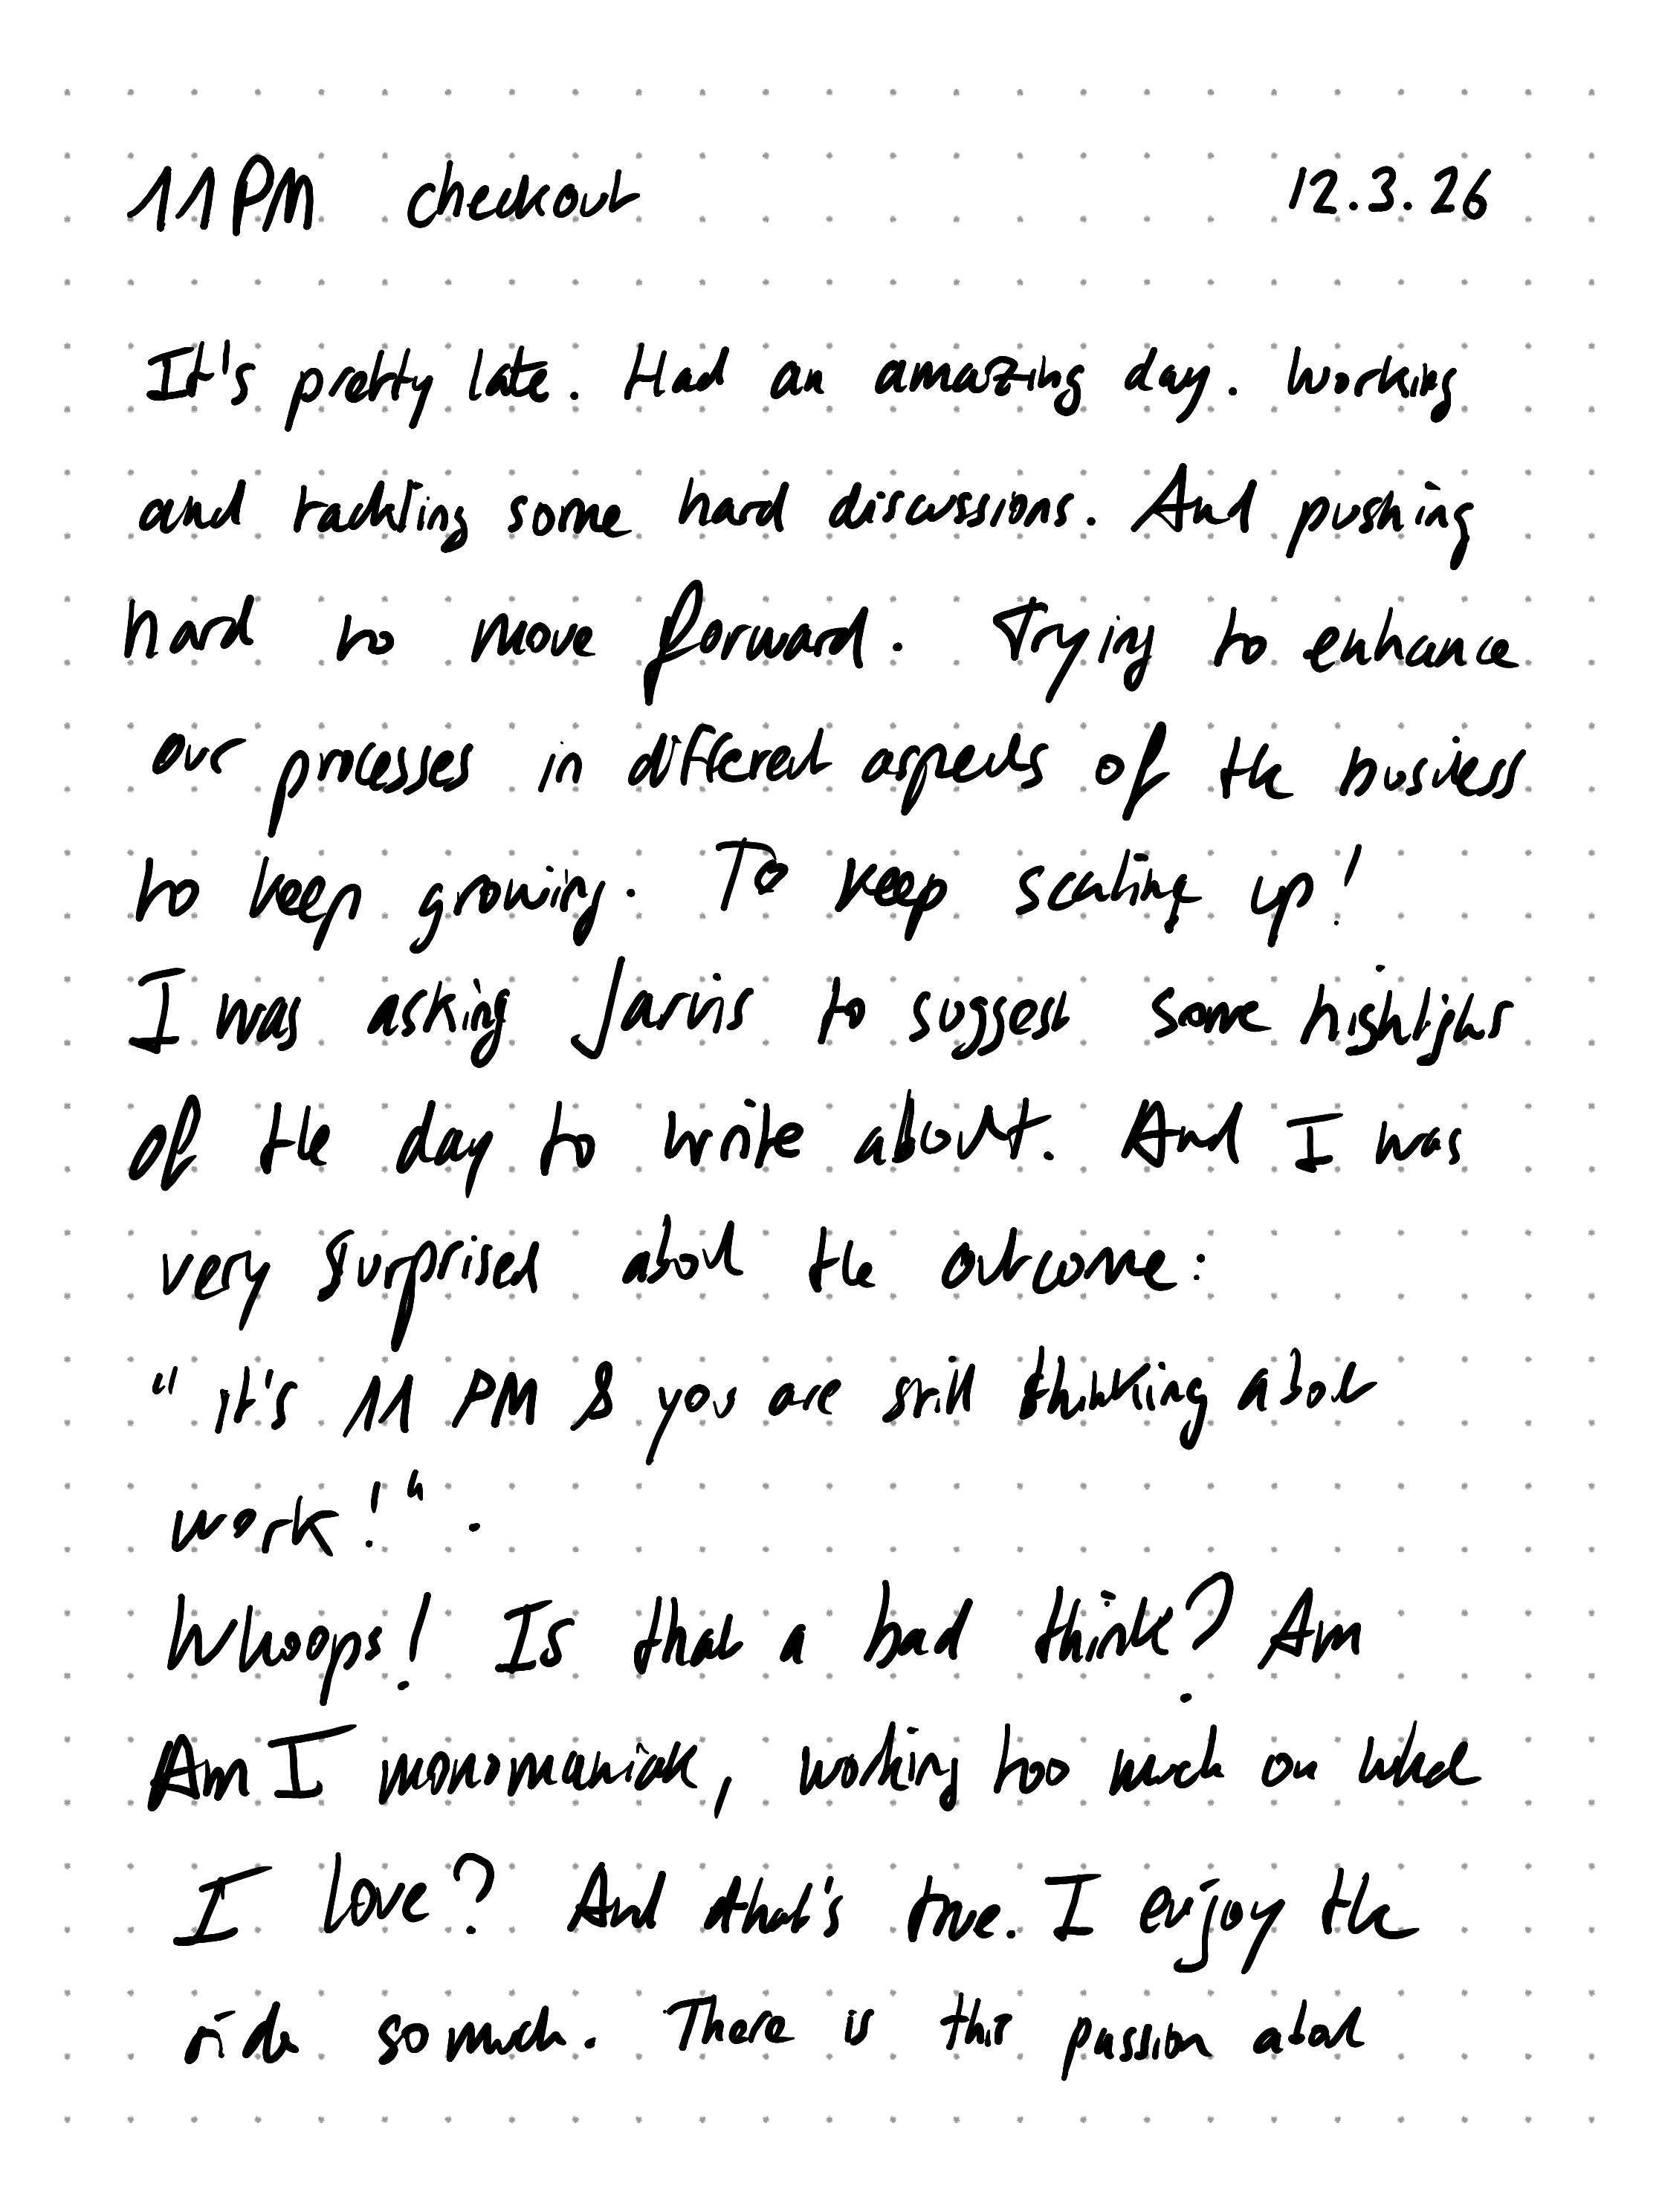 11PM checkout 12.3.26
It's pretty late. Had an amazing day. Working
and tackling some hard discussions. And pushing
hard to move forward. Trying to enhance
our processes in different aspects of the business
to keep growing. To keep scaling up!
I was asking Jarvis to suggest some highlights
of the day to write about. And I was
very surprised about the outcome:
"it's 11 PM & you are still thinking about
work!".
Whoops! Is that a bad think? Am
Am I monomaniak, working too much on what
I love? And that's true. I enjoy the
ride so much. There is this passion about